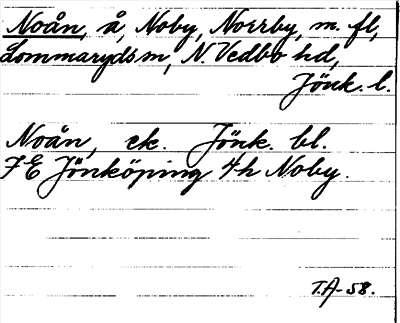 Noån, å, Noby, Norrby, m. fl,
Lommaryds sn, N. Vedbo hd,
Jönk. l.
Noån, ek. Jönk. bl.
7E Jönköping 4h Noby.
T.A-58.